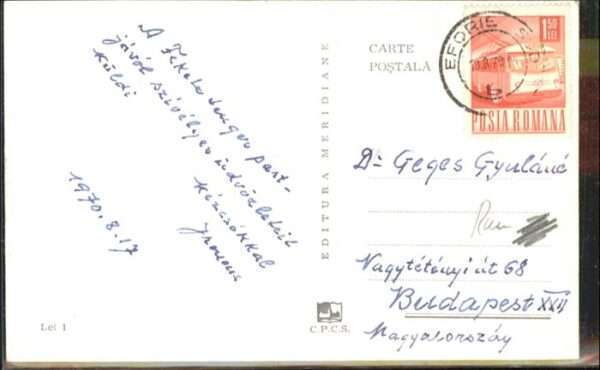 A Fekete tenger part-
járól szívélyes üdvözletét
küldi
1970. 8. 17
EDITURA MERIDIANE
CARTE
POȘTALĂ
EFORIE
1,50
LEI
POSTA ROMANA
Dr Geges Gyuláné
Nagytétényi út 68
Budapest XXII
Magyarország
Lei 1
C.P.C.S.